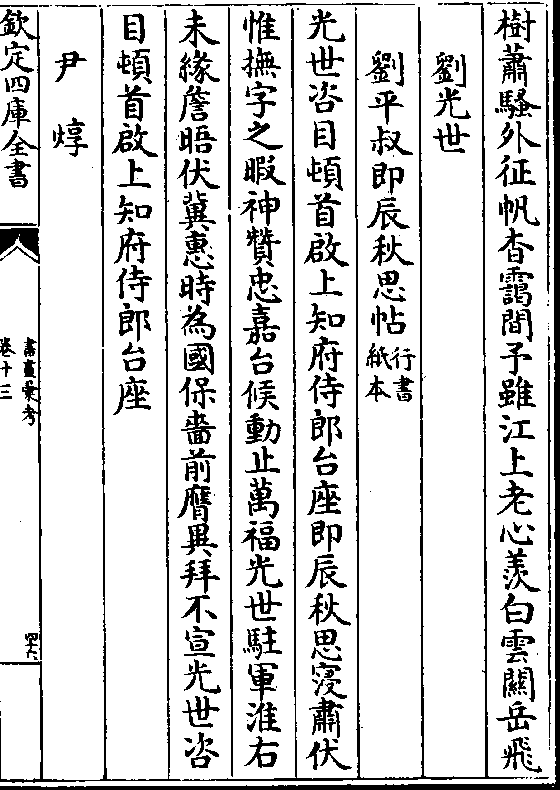 樹蕭騷外征帆杳靄間予雖江上老心羨白雲關岳飛
劉光世
劉平叔即辰秋思帖行書紙本
光世咨目頓首啟上知府侍郎台座即辰秋思寖肅伏
惟撫字之暇神贊忠嘉台候動止萬福光世駐軍淮右
未緣詹晤伏冀惠時為國保嗇前膺異拜不宣光世咨
目頓首啟上知府侍郎台座
尹焞
欽定四庫全書
書畫彙考
卷十三